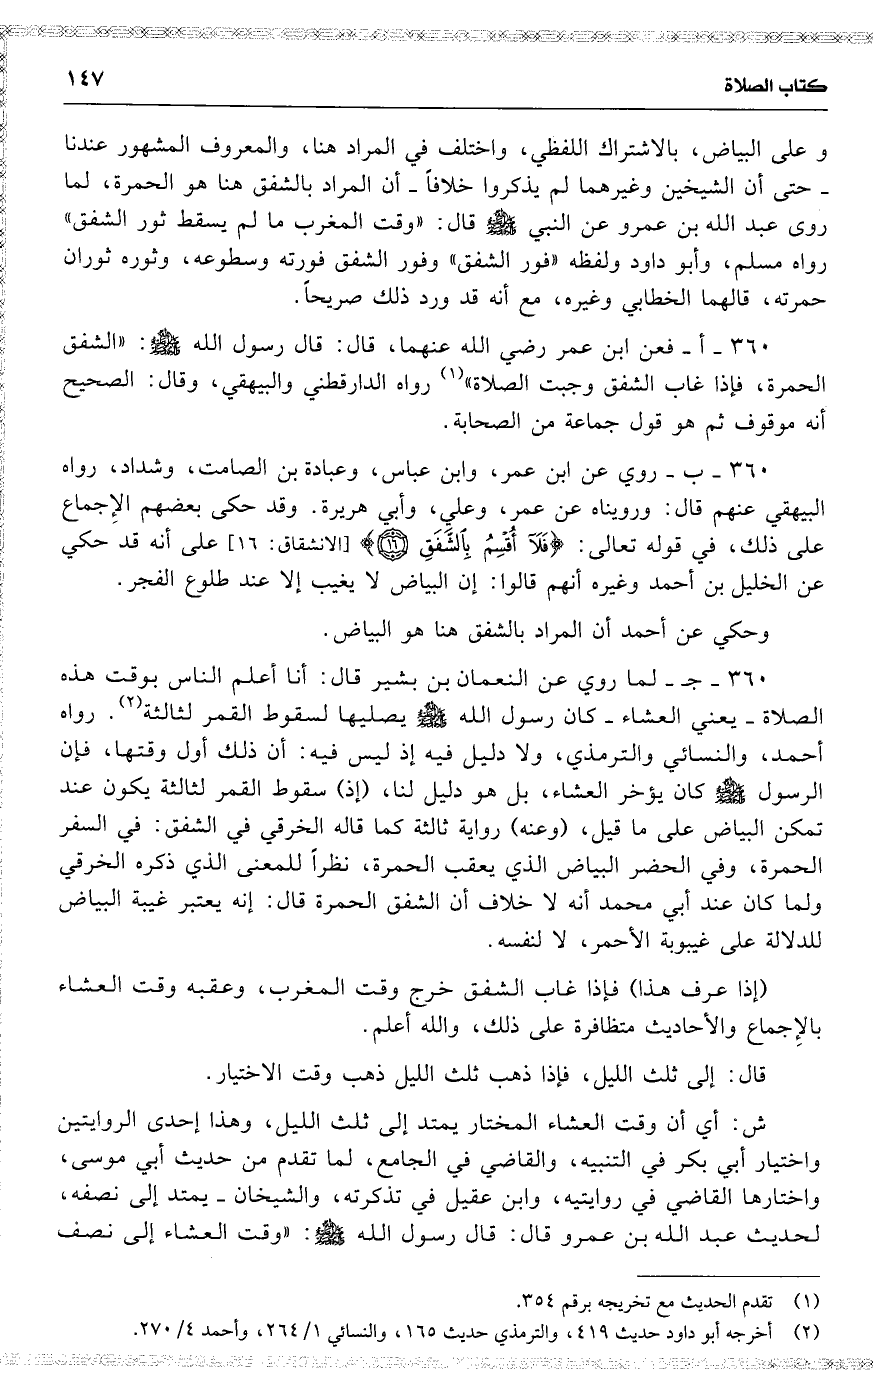 كتاب الصلاة ١٤٧
و على البياض، بالاشتراك اللفظي، واختلف في المراد هنا، والمعروف المشهور عندنا
ـ حتى أن الشيخين وغيرهما لم يذكروا خلافاً ـ أن المراد بالشفق هنا هو الحمرة، لما
روى عبد الله بن عمرو عن النبي ﷺ قال: «وقت المغرب ما لم يسقط ثور الشفق»
رواه مسلم، وأبو داود ولفظه «فور الشفق» وفور الشفق فورته وسطوعه، وثوره ثوران
حمرته، قالهما الخطابي وغيره، مع أنه قد ورد ذلك صريحاً.
٣٦٠ ـ أ ـ فعن ابن عمر رضي الله عنهما، قال: قال رسول الله ﷺ: «الشفق
الحمرة، فإذا غاب الشفق وجبت الصلاة»(١) رواه الدارقطني والبيهقي، وقال: الصحيح
أنه موقوف ثم هو قول جماعة من الصحابة.
٣٦٠ ـ ب ـ روي عن ابن عمر، وابن عباس، وعبادة بن الصامت، وشداد، رواه
البيهقي عنهم قال: ورويناه عن عمر، وعلي، وأبي هريرة. وقد حكى بعضهم الإجماع
على ذلك، في قوله تعالى: ﴿فَلَآ أُقْسِمُ بِالشَّفَقِ ١٦﴾ [الانشقاق: ١٦] على أنه قد حكي
عن الخليل بن أحمد وغيره أنهم قالوا: إن البياض لا يغيب إلا عند طلوع الفجر.
وحكي عن أحمد أن المراد بالشفق هنا هو البياض.
٣٦٠ ـ جـ ـ لما روي عن النعمان بن بشير قال: أنا أعلم الناس بوقت هذه
الصلاة ـ يعني العشاء ـ كان رسول الله ﷺ يصليها لسقوط القمر لثالثة(٢). رواه
أحمد، والنسائي والترمذي، ولا دليل فيه إذ ليس فيه: أن ذلك أول وقتها، فإن
الرسول ﷺ كان يؤخر العشاء، بل هو دليل لنا، (إذ) سقوط القمر لثالثة يكون عند
تمكن البياض على ما قيل، (وعنه) رواية ثالثة كما قاله الخرقي في الشفق: في السفر
الحمرة، وفي الحضر البياض الذي يعقب الحمرة، نظراً للمعنى الذي ذكره الخرقي
ولما كان عند أبي محمد أنه لا خلاف أن الشفق الحمرة قال: إنه يعتبر غيبة البياض
للدلالة على غيبوبة الأحمر، لا لنفسه.
(إذا عرف هذا) فإذا غاب الشفق خرج وقت المغرب، وعقبه وقت العشاء
بالإجماع والأحاديث متظافرة على ذلك، والله أعلم.
قال: إلى ثلث الليل، فإذا ذهب ثلث الليل ذهب وقت الاختيار.
ش: أي أن وقت العشاء المختار يمتد إلى ثلث الليل، وهذا إحدى الروايتين
واختيار أبي بكر في التنبيه، والقاضي في الجامع، لما تقدم من حديث أبي موسى،
واختارها القاضي في روايتيه، وابن عقيل في تذكرته، والشيخان ـ يمتد إلى نصفه،
لحديث عبد الله بن عمرو قال: قال رسول الله ﷺ: «وقت العشاء إلى نصف
(١) تقدم الحديث مع تخريجه برقم ٣٥٤.
(٢) أخرجه أبو داود حديث ٤١٩، والترمذي حديث ١٦٥، والنسائي ١/ ٢٦٤، وأحمد ٤/ ٢٧٠.